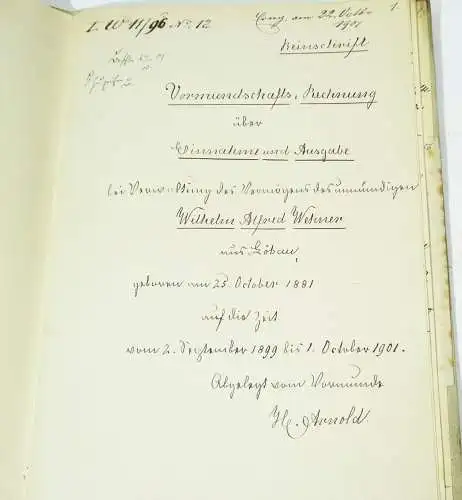 I. W 11/96 No. 12
Eing. am 22. Octbr
1901
1.
Reinschrift
Vormundschafts-Rechnung
über
Einnahme und Ausgabe
bei Verwaltung des Vermögens des unmündigen
Wilhelm Alfred Wehner
aus Löbau,
geboren am 25. October 1881
auf die Zeit
vom 2. September 1899 bis 1. October 1901.
Abgelegt vom Vormunde
H. Arnold.